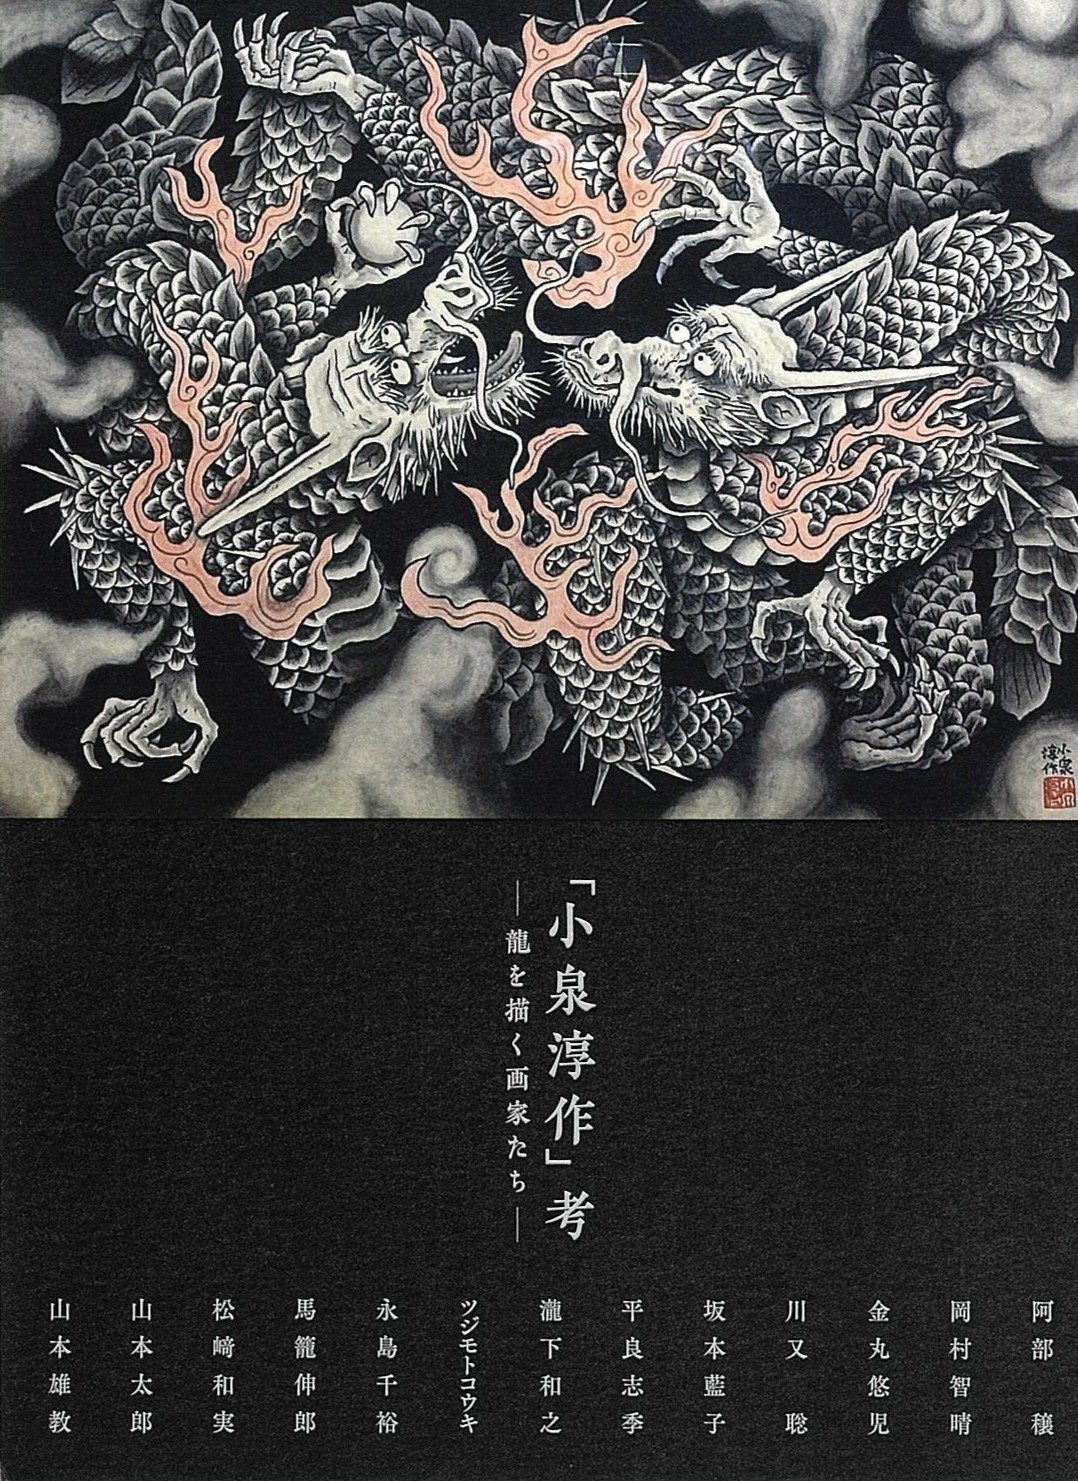 小泉
淳作
「小泉淳作」考
—龍を描く画家たち—
阿部 穣
岡村智晴
金丸悠児
川又 聡
坂本藍子
平良志季
瀧下和之
ツジモトコウキ
永島千裕
馬籠伸郎
松﨑和実
山本太郎
山本雄教